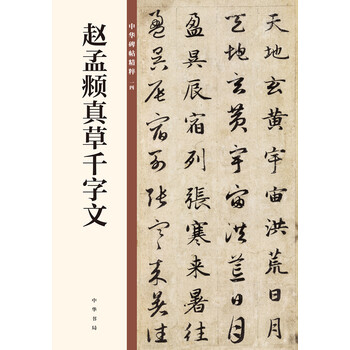 中华碑帖精粹 一四
赵孟𫖯真草千字文
中华书局
天地玄黄宇宙洪荒日月
天地玄黄宇宙洪荒日月
盈昃辰宿列張寒来暑往
盈昃辰宿列張寒来暑往